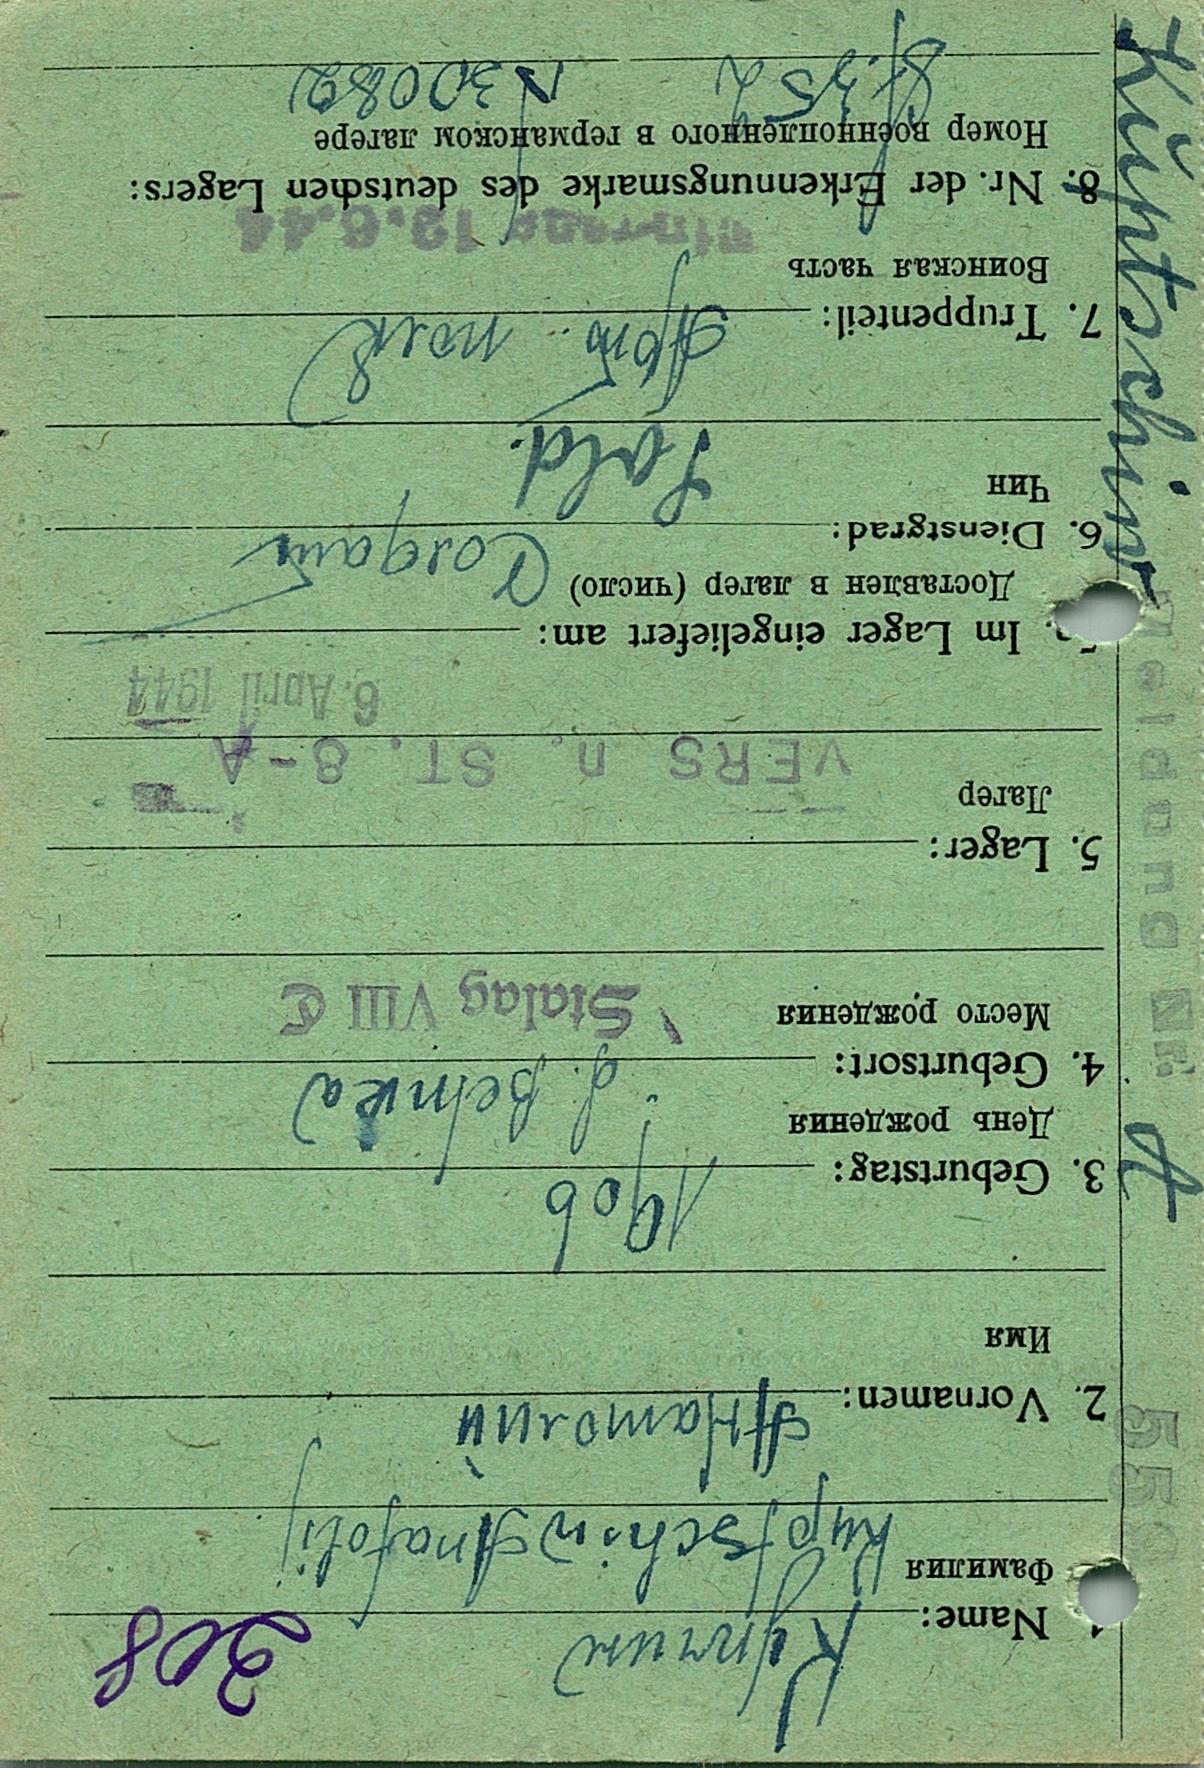 208
1. Name:
Купчин
Фамилия
Kuptschin Anatolij
2. Vornamen:
Анатолий
Имя
3. Geburtstag: 1906
День рождения
4. Geburtsort:
Место рождения
Stalag VIII C
5. Lager:
Лагер
VERS n. ST. 8-A
6. April 1944
5a. Im Lager eingeliefert am:
Доставлен в лагер (число)
6. Dienstgrad: Солдат
Чин
Sold.
7. Truppenteil: Арт. полк
Воинская часть
12.6.44
8. Nr. der Erkennungsmarke des deutschen Lagers:
Номер военнопленного в германском лагере
St. 352 N 30082
Küptschin
Meldung Nr.
A
55